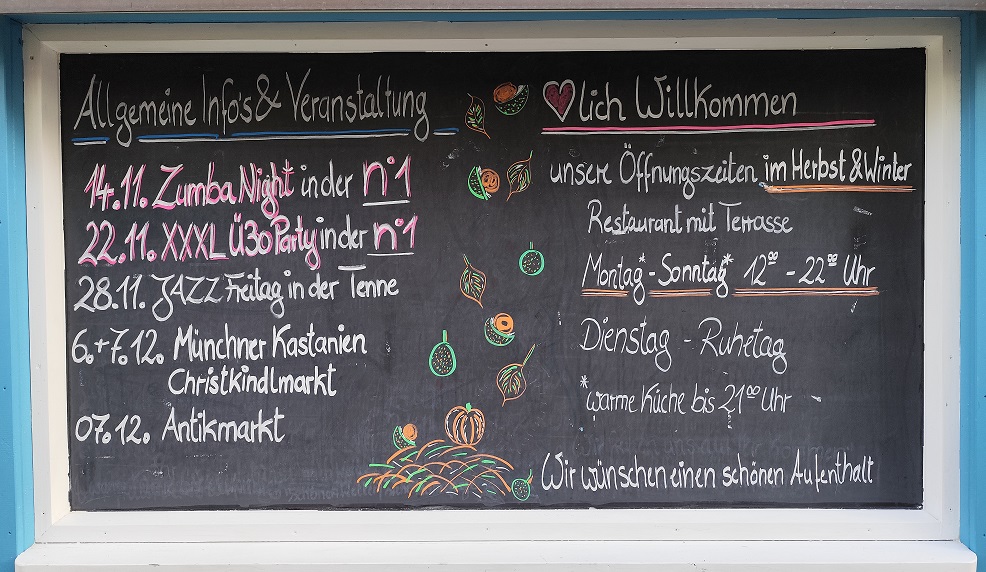 Allgemeine Info's & Veranstaltung
14.11. Zumba Night* in der n°1
22.11. XXXL Ü30 Party in der n°1
28.11. JAZZ Freitag in der Tenne
6.+7.12. Münchner Kastanien
Christkindlmarkt
07.12. Antikmarkt
♥lich Willkommen
unsere Öffnungszeiten im Herbst & Winter
Restaurant mit Terrasse
Montag* - Sonntag* 12⁰⁰ - 22⁰⁰ Uhr
Dienstag - Ruhetag
*warme Küche bis 21⁰⁰ Uhr
Wir wünschen einen schönen Aufenthalt